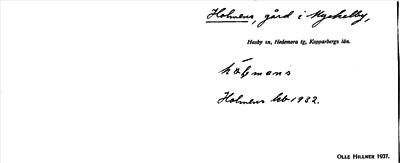 Holmens, gård i Myckelby,
Husby sn, Hedemora tg, Kopparbergs län.
Holmens kb 1932.
OLLE HILLNER 1937.